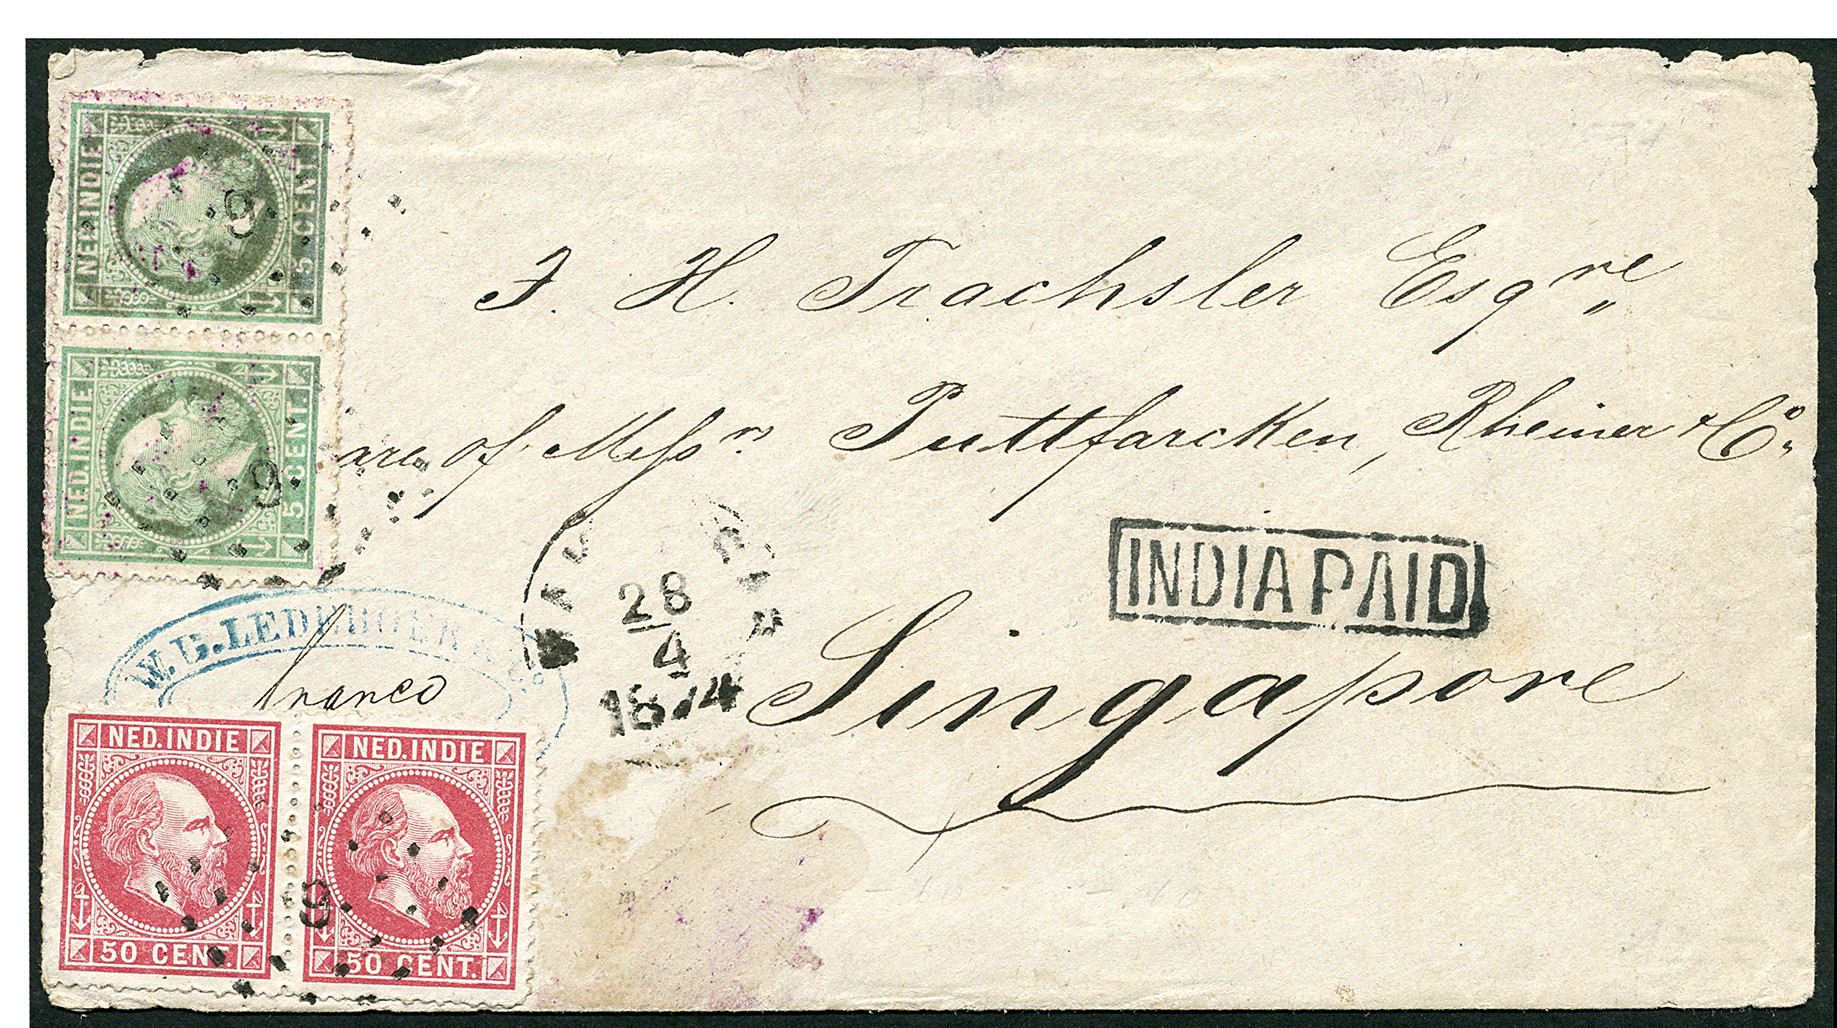 NED.INDIE
5 CENT.
NED.INDIE
5 CENT.
9
9
J. H. Trachsler Esqre
are of Messrs Puttfarcken, Rheiner & Co.
INDIA PAID
28
4
1874
Singapore
W.C.LEDEBOER & Co.
franco
NED.INDIE
50 CENT.
NED.INDIE
50 CENT.
9